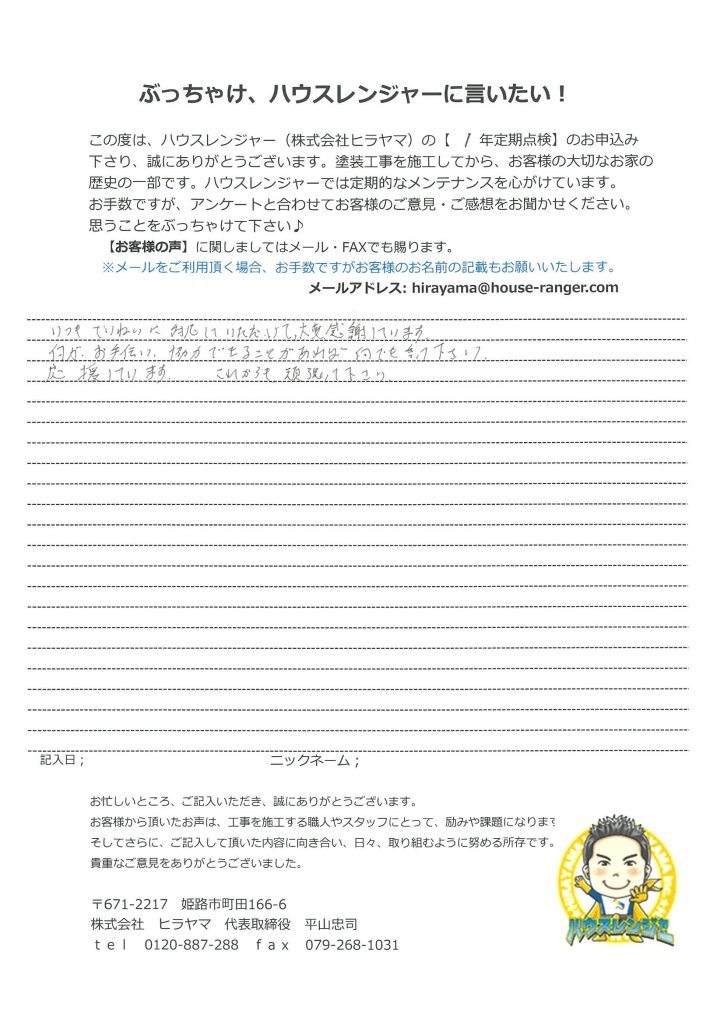 ぶっちゃけ、ハウスレンジャーに言いたい！
この度は、ハウスレンジャー（株式会社ヒラヤマ）の【　/　年定期点検】のお申込み
下さり、誠にありがとうございます。塗装工事を施工してから、お客様の大切なお家の
歴史の一部です。ハウスレンジャーでは定期的なメンテナンスを心がけています。
お手数ですが、アンケートと合わせてお客様のご意見・ご感想をお聞かせください。
思うことをぶっちゃけて下さい♪
【お客様の声】に関しましてはメール・FAXでも賜ります。
※メールをご利用頂く場合、お手数ですがお客様のお名前の記載もお願いいたします。
メールアドレス: hirayama@house-ranger.com
いつも ていねいに 対応していただいて、大変感謝しています。
何か、お手伝い、協力できることがあれば 何でも言って下さい。
応援しています。 これからも 頑張って下さい
記入日； ニックネーム；
お忙しいところ、ご記入いただき、誠にありがとうございます。
お客様から頂いたお声は、工事を施工する職人やスタッフにとって、励みや課題になります
そしてさらに、ご記入して頂いた内容に向き合い、日々、取り組むように努める所存です。
貴重なご意見をありがとうございました。
〒671-2217　姫路市町田166-6
株式会社　ヒラヤマ　代表取締役　平山忠司
ｔｅｌ　0120-887-288　ｆａｘ　079-268-1031
ハウスレンジャー